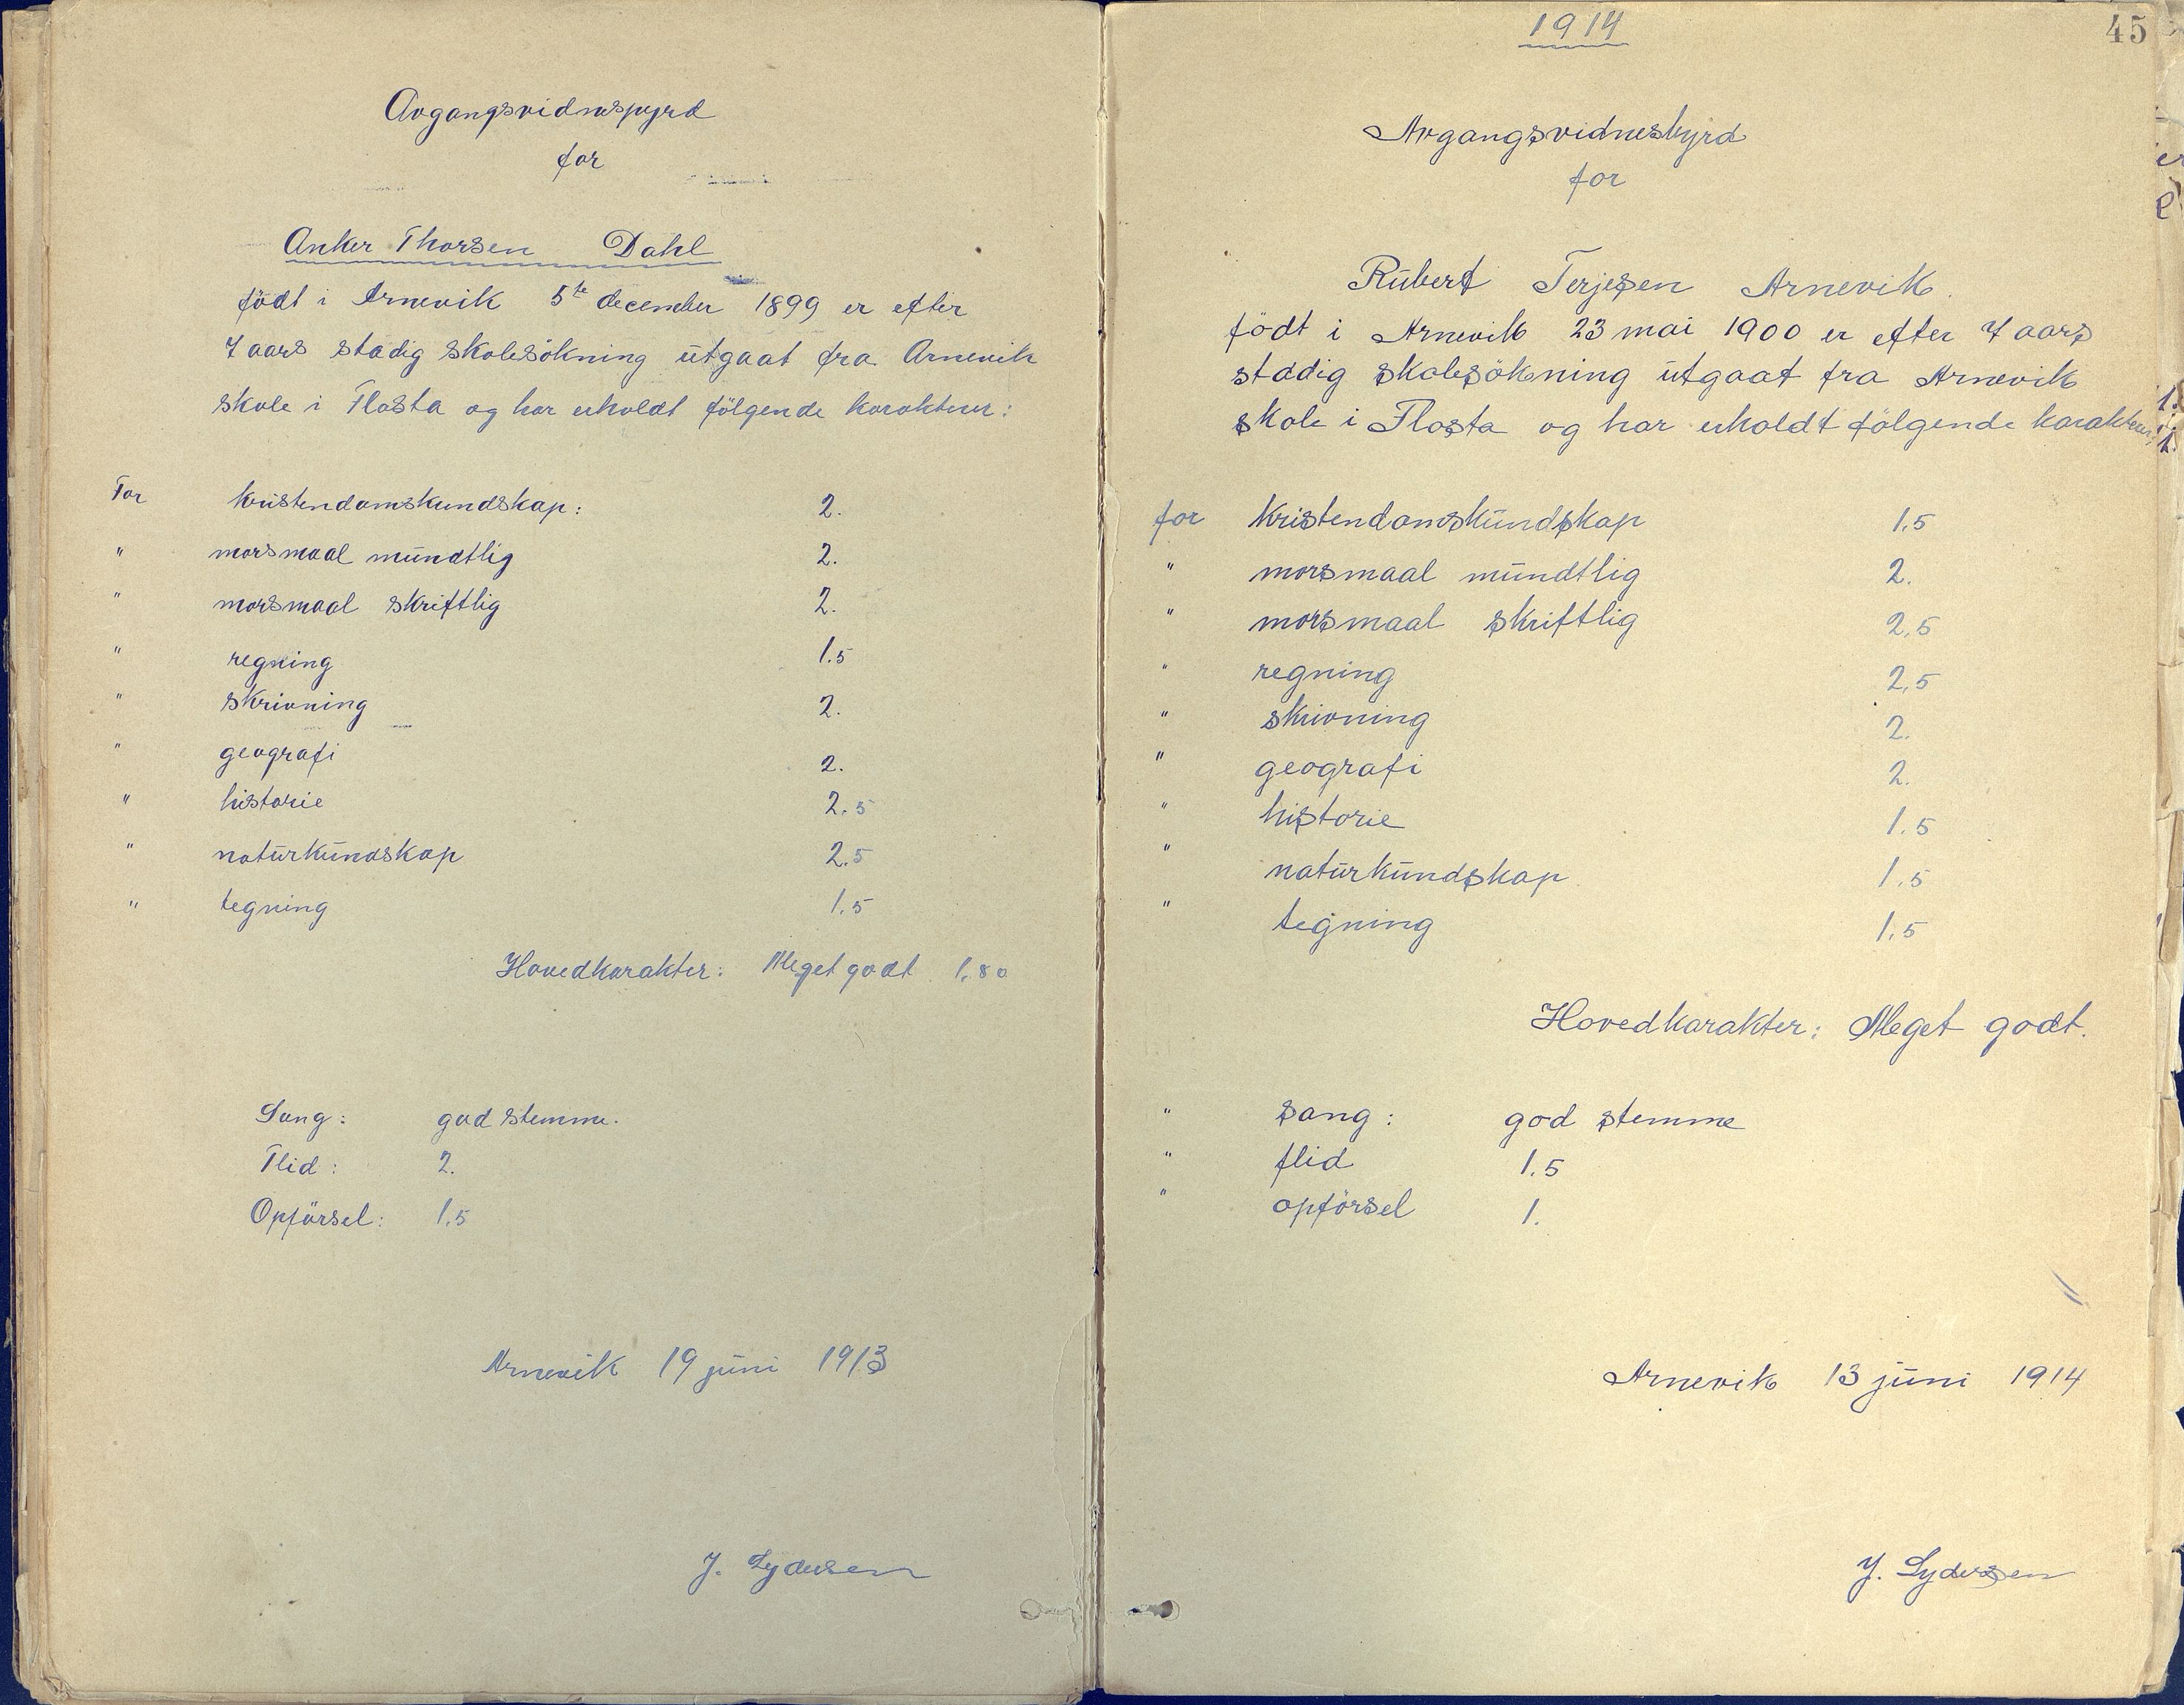 Avgangsvidnesbyrd
for
Anker Thorsen Dahl
födt i Arnevik 5te december 1899 er efter
7 aars stadig skolesökning utgaat fra Arnevik
skole i Flosta og har erholdt fölgende karakterer:
For kristendomskundskap: 2.
" morsmaal mundtlig 2.
" morsmaal skriftlig 2.
" regning 1.5
" skrivning 2.
" geografi 2.
" historie 2.5
" naturkundskap 2.5
" tegning 1.5
Hovedkarakter: Meget godt 1.80
Sang: god stemme.
Flid: 2.
Opförsel: 1.5
Arnevik 19 juni 1913
J. Lydersen
1914
45
Avgangsvidnesbyrd
for
Rubert Terjesen Arnevik.
födt i Arnevik 23 mai 1900 er efter 7 aars
stadig skolesökning utgaat fra Arnevik
skole i Flosta og har erholdt fölgende karakterer:
for kristendomskundskap 1.5
" morsmaal mundtlig 2.
" morsmaal skriftlig 2,5
" regning 2,5
" skrivning 2.
" geografi 2.
" historie 1.5
" naturkundskap 1.5
" tegning 1.5
Hovedkarakter: Meget godt.
" sang: god stemme
" flid 1.5
" opförsel 1.
Arnevik 13 juni 1914
J. Lydersen